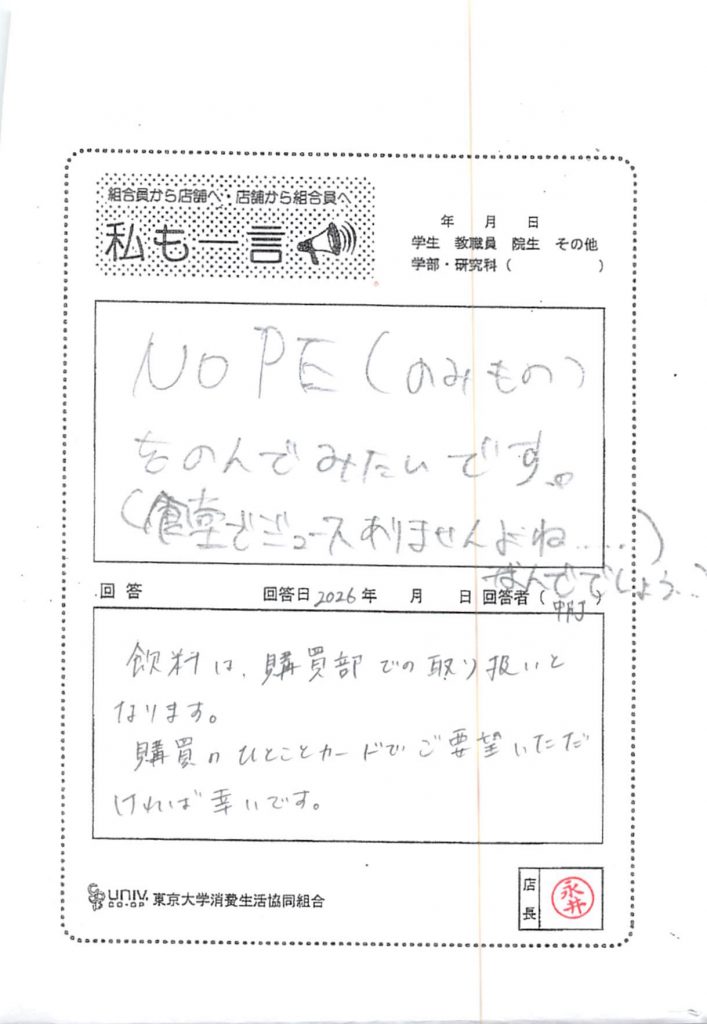 組合員から店舗へ・店舗から組合員へ
私も一言
年 月 日
学生 教職員 院生 その他
学部・研究科 ( )
NOPE(のみもの)
をのんでみたいです。
(食堂でジュースありませんよね……)
なんででしょう…?
回答 回答日 2026年 月 日 回答者 ( )
飲料は、購買部での取り扱いと
なります。
購買のひとことカードでご要望いただ
ければ幸いです。
UNIV.
CO-OP
東京大学消費生活協同組合
店長
永井